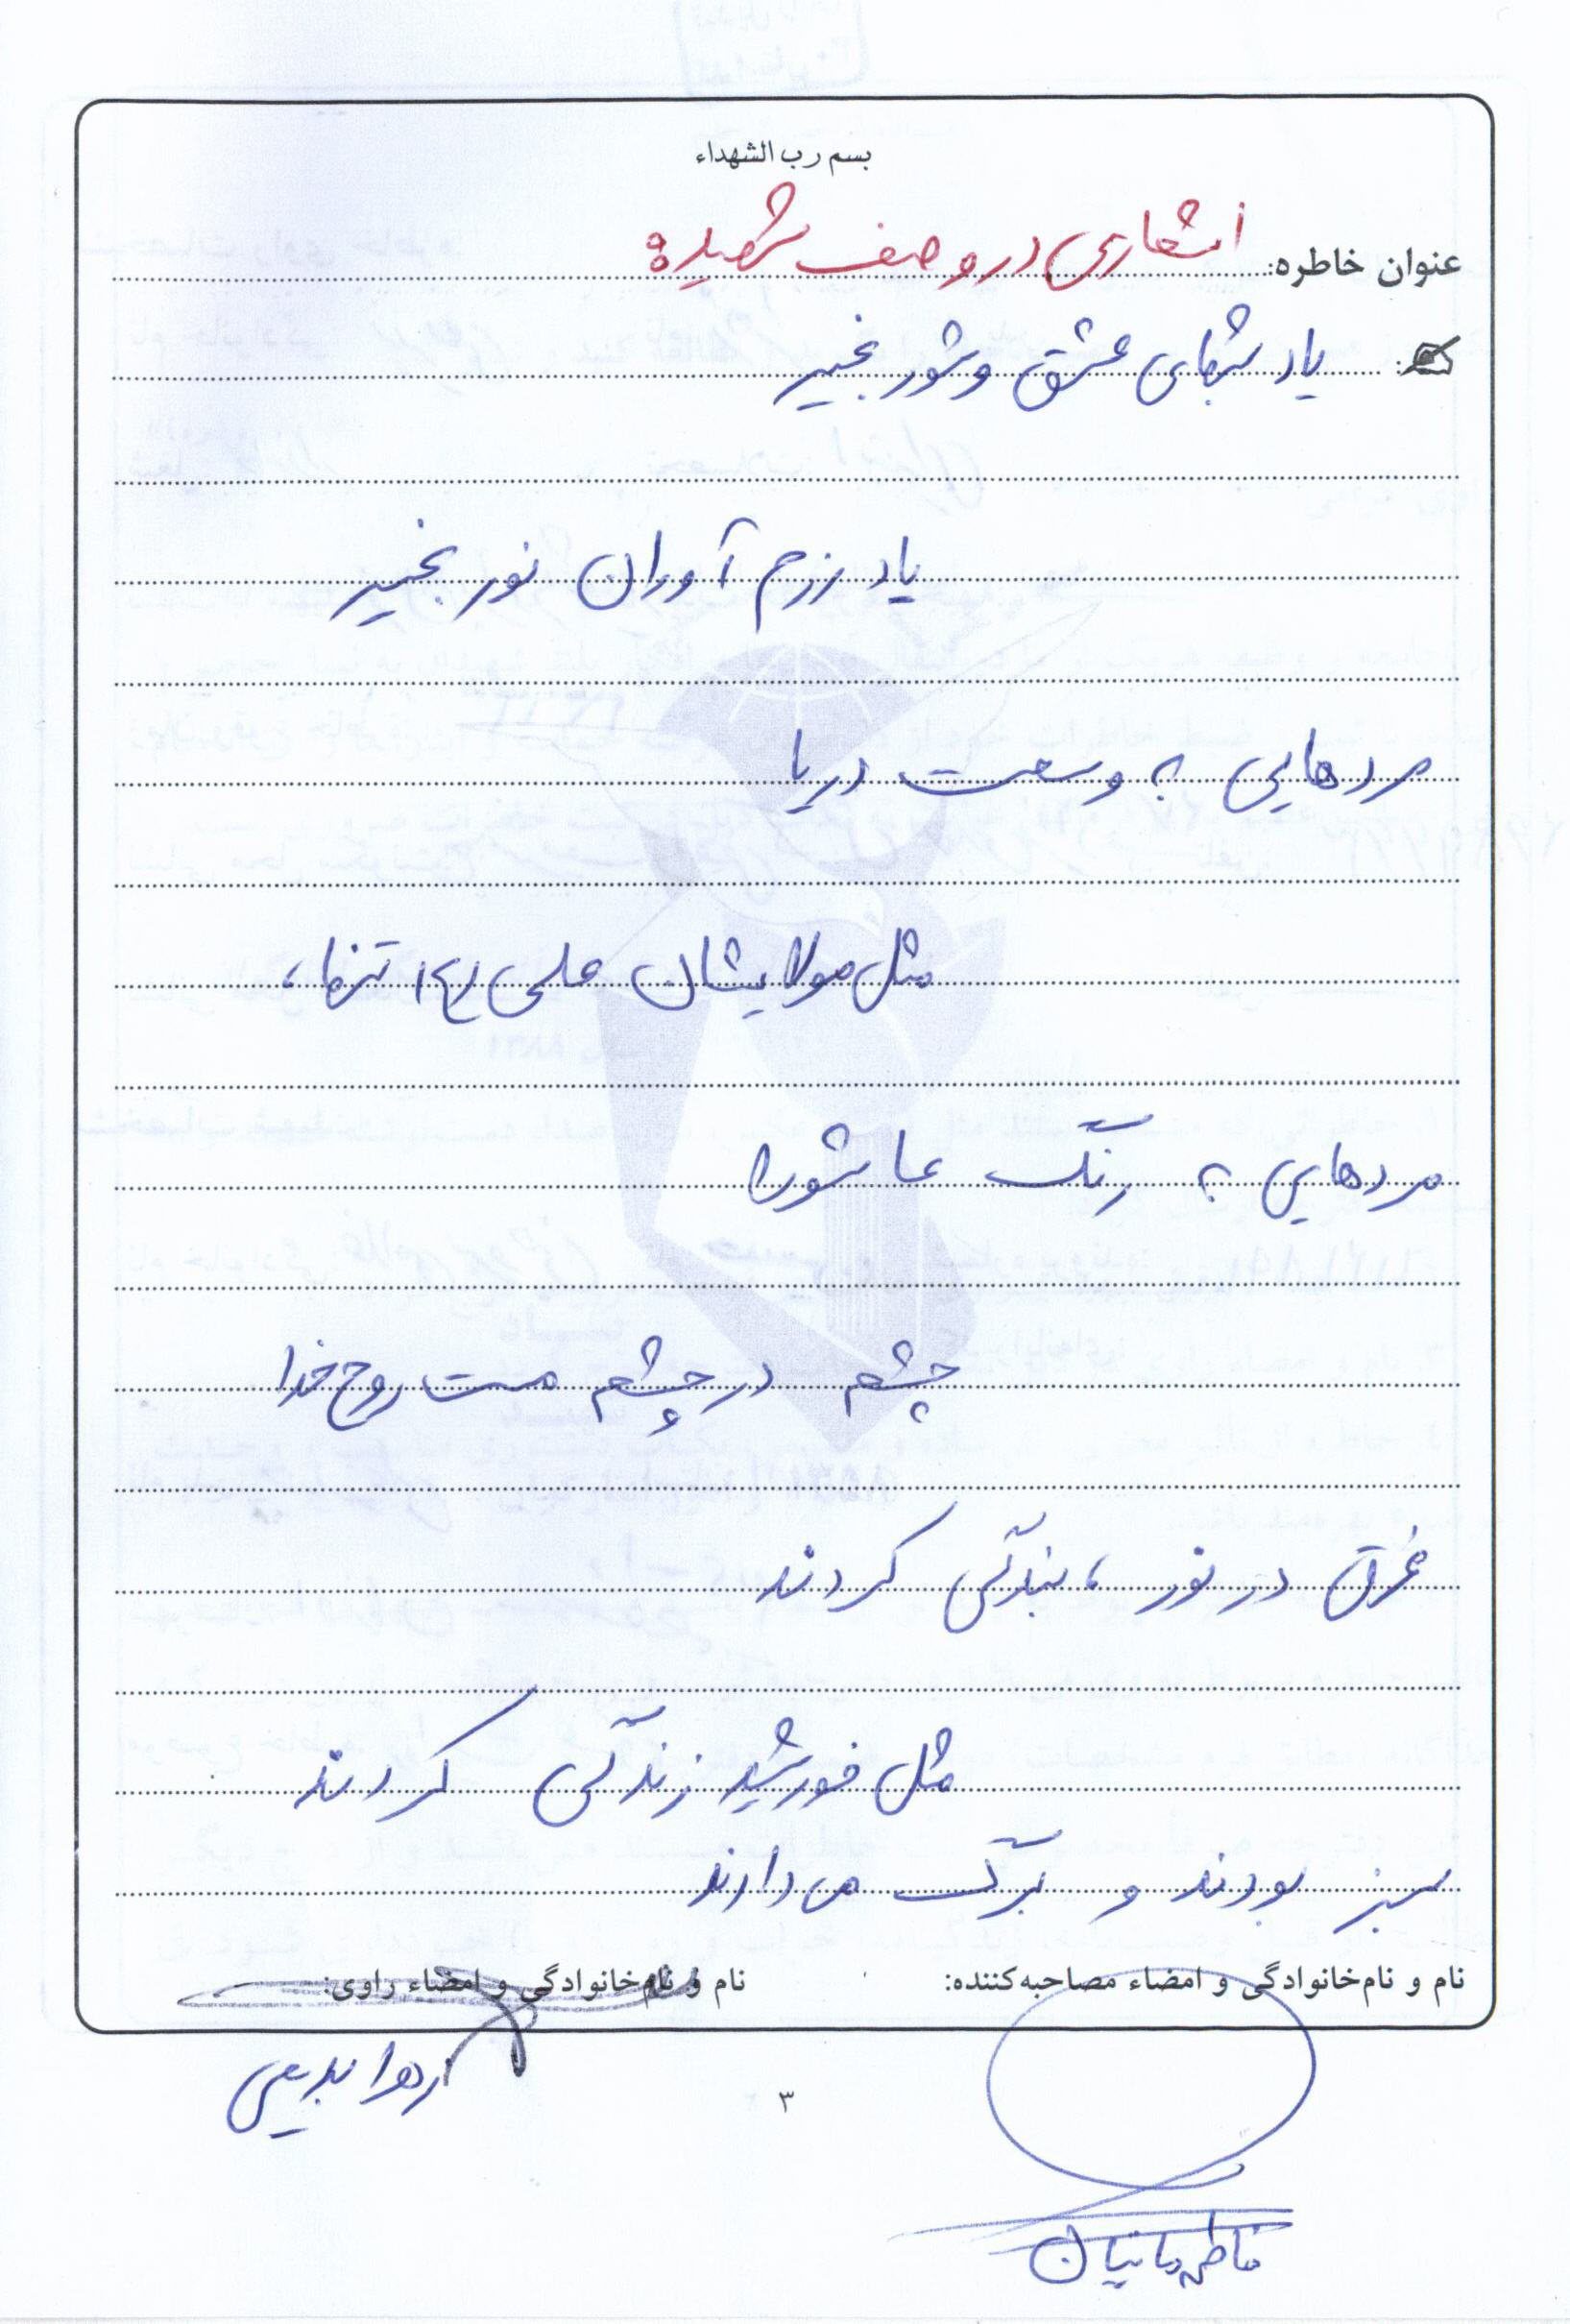 بسم رب الشهداء
عنوان خاطره: اشعاری در وصف شهید:
یاد شبهای عشق و شور بخیر
یاد رزم آوران نور بخیر
مردهایی به وسعت دریا
مثل مولایشان علی (ع) تنها،
مردهایی به رنگ عاشورا
چشم در چشم مست روح خدا
غرق در نور، بندگی کردند
مثل خورشید زندگی کردند
سبز بودند و برگ می دارند
نام و نام‌خانوادگی و امضاء مصاحبه‌کننده:
نام و نام‌خانوادگی و امضاء راوی:
زهرا بدیعی
۳